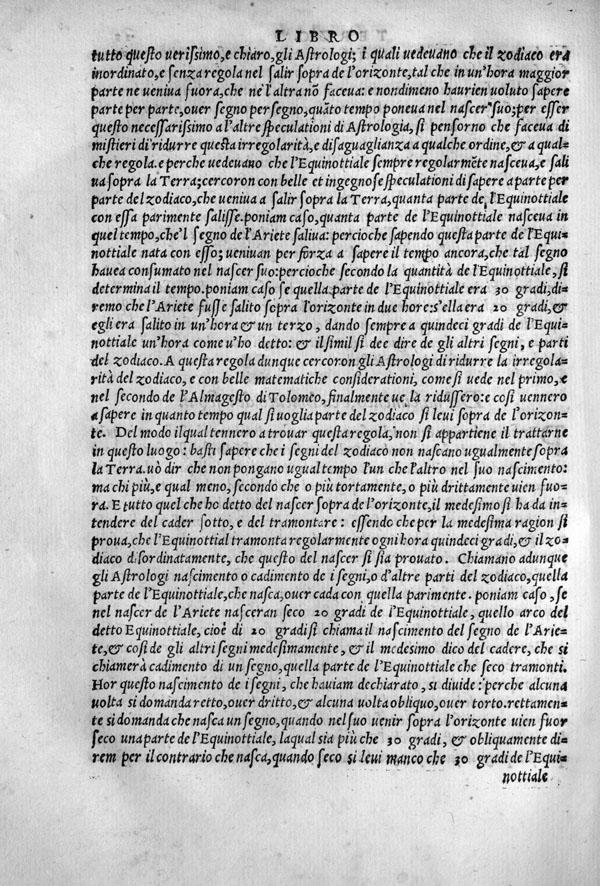 LIBRO
tutto questo verissimo, e chiaro, gli Astrologi; i quali vedevano che il zodiaco era
inordinato, e senza regola nel salir sopra de l'orizonte, tal che in un'hora maggior
parte ne veniva fuora, che ne l'altra nō faceva: e nondimeno haurien voluto sapere
parte per parte, over segno per segno, quāto tempo poneva nel nascer suo; per esser
questo necessarissimo a l'altre speculationi di Astrologia, si pensorno che faceva di
mistieri di ridurre questa irregolarità, e disaguaglianza a qualche ordine, & a qual-
che regola. e perche vedevano che l'Equinottiale sempre regolarmēte nasceva, e sali
va sopra la Terra; cercoron con belle et ingegnose speculationi di sapere a parte per
parte del zodiaco, che veniva a salir sopra la Terra, quanta parte de l'Equinottiale
con essa parimente salisse. poniam caso, quanta parte de l'Equinottiale nasceva in
quel tempo, che'l segno de l'Ariete saliva: percioche sapendo questa parte de l'Equi-
nottiale nata con esso; venivan per forza a sapere il tempo ancora, che tal segno
havea consumato nel nascer suo: percioche secondo la quantità de l'Equinottiale, si
determina il tempo. poniam caso se quella parte de l'Equinottiale era 30 gradi, di-
remo che l'Ariete fusse salito sopra l'orizonte in due hore: s'ella era 20 gradi, &
egli era salito in un'hora & un terzo, dando sempre a quindeci gradi de l'Equi-
nottiale un'hora come v'ho detto: & il simil si dee dire de gli altri segni, e parti
del zodiaco. A questa regola dunque cercoron gli Astrologi di ridurre la irregola-
rità del zodiaco, e con belle matematiche considerationi, come si vede nel primo, e
nel secondo de l'Almagesto di Tolomeo, finalmente ve la ridussero: e così vennero
a sapere in quanto tempo qual si voglia parte del zodiaco si levi sopra de l'orizon-
te. Del modo il qual tennero a trovar questa regola, non si appartiene il trattarne
in questo luogo: basti sapere che i segni del zodiaco non nascano ugualmente sopra
la Terra. vò dir che non pongano ugual tempo l'un che l'altro nel suo nascimento:
ma chi più, e qual meno, secondo che o più tortamente, o più drittamente vien fuo-
ra. E tutto quel che ho detto del nascer sopra de l'orizonte, il medesimo si ha da in-
tendere del cader sotto, e del tramontare: essendo che per la medesima ragion si
prova, che l'Equinottial tramonta regolarmente ogni hora quindeci gradi, & il zo-
diaco disordinatamente, che questo del nascer si sia provato. Chiamano adunque
gli Astrologi nascimento o cadimento de i segni, o d'altre parti del zodiaco, quella
parte de l'Equinottiale, che nasca, over cada con quella parimente. poniam caso, se
nel nascer de l'Ariete nasceran seco 20 gradi de l'Equinottiale, quello arco del
detto Equinottiale, cioè di 20 gradi si chiama il nascimento del segno de l'Arie-
te, & così de gli altri segni medesimamente, & il medesimo dico del cadere, che si
chiamerà cadimento di un segno, quella parte de l'Equinottiale che seco tramonti.
Hor questo nascimento de i segni, che haviam dechiarato, si divide: perche alcuna
volta si domanda retto, over dritto, & alcuna volta obliquo, over torto. rettamen-
te si domanda che nasca un segno, quando nel suo venir sopra l'orizonte vien fuor
seco una parte de l'Equinottiale, laqual sia più che 30 gradi, & obliquamente di-
rem per il contrario che nasca, quando seco si levi manco che 30 gradi de l'Equi-
nottiale